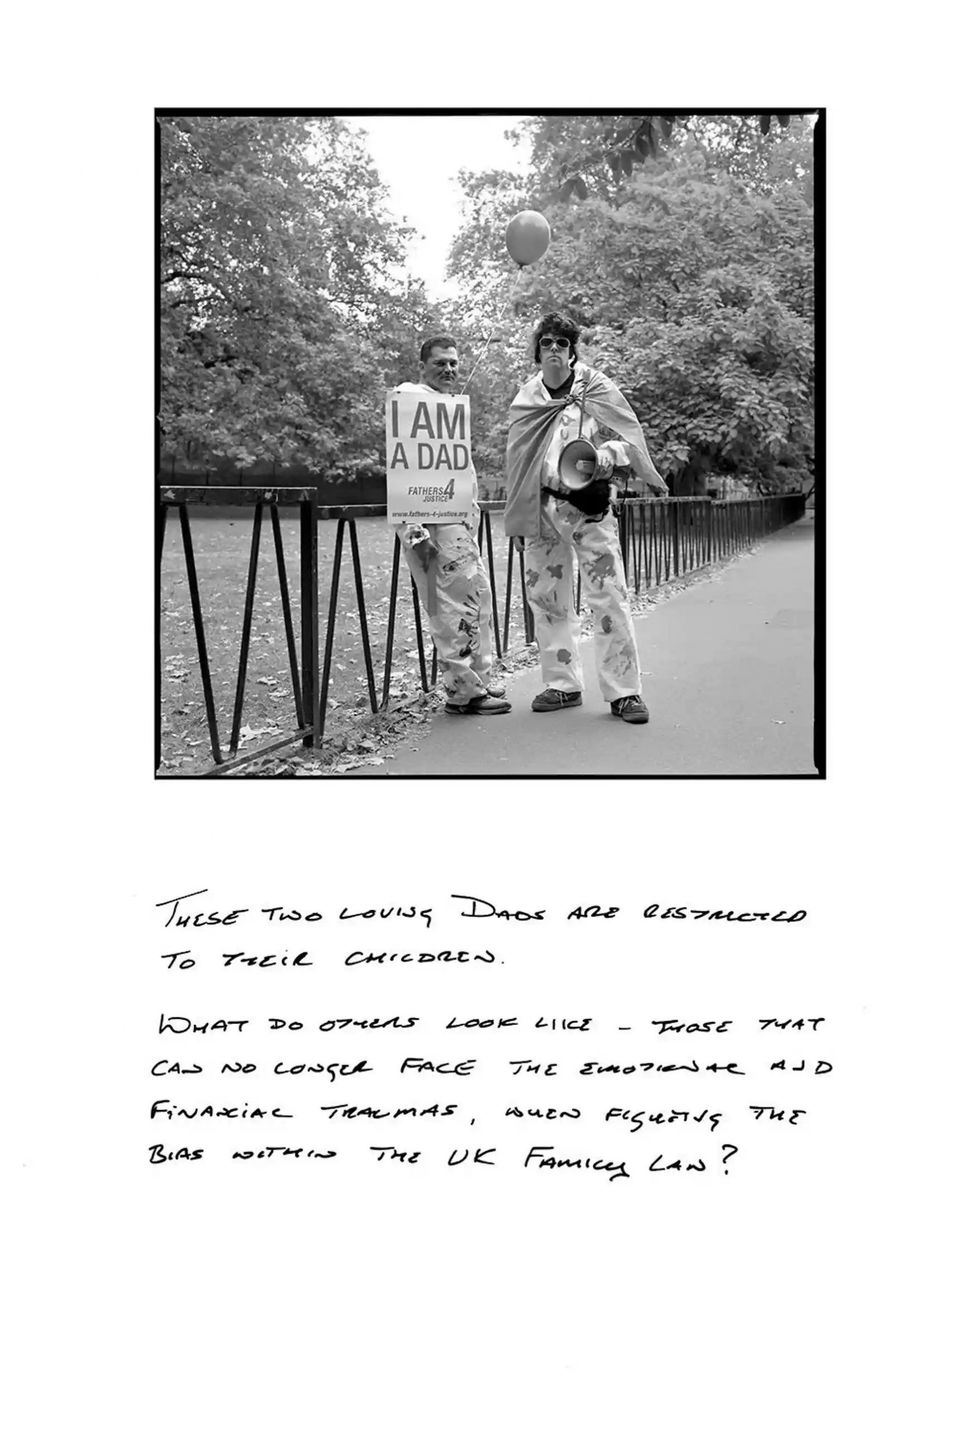 I AM
A DAD
FATHERS 4
JUSTICE
www.fathers-4-justice.org
THESE TWO LOVING DADS ARE RESTRICTED
TO THEIR CHILDREN.
WHAT DO OTHERS LOOK LIKE – THOSE THAT
CAN NO LONGER FACE THE EMOTIONAL AND
FINANCIAL TRAUMAS, WHEN FIGHTING THE
BIAS WITHIN THE UK FAMILY LAW?